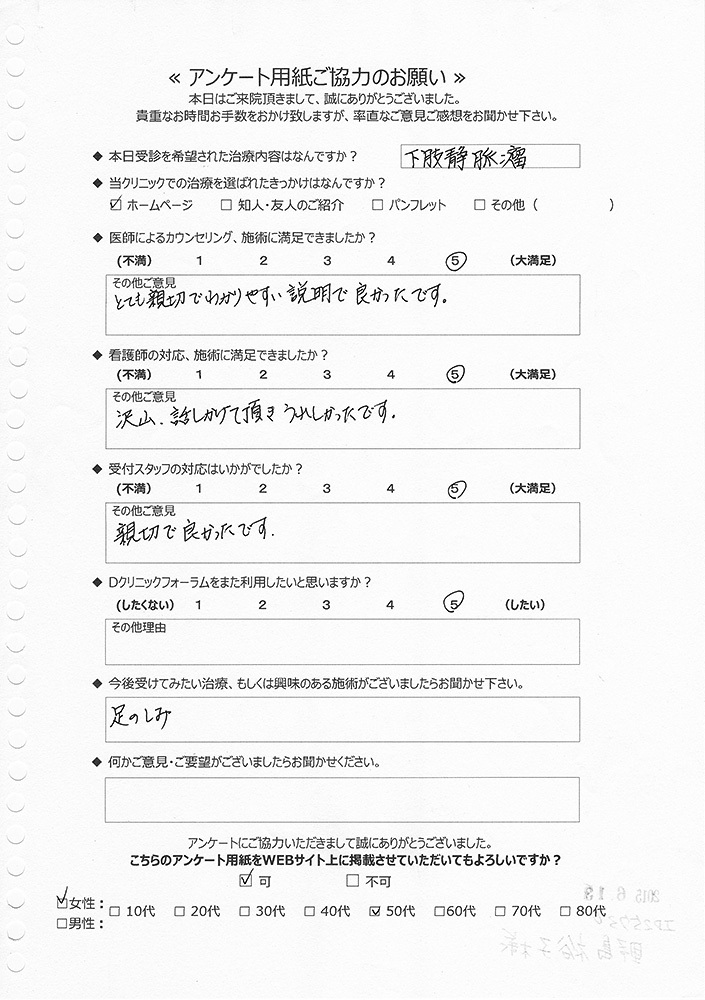 ≪ アンケート用紙ご協力のお願い ≫
本日はご来院頂きまして、誠にありがとうございました。
貴重なお時間お手数をおかけ致しますが、率直なご意見ご感想をお聞かせ下さい。
◆ 本日受診を希望された治療内容はなんですか？ 下肢静脈瘤
◆ 当クリニックでの治療を選ばれたきっかけはなんですか？
☑ ホームページ □ 知人・友人のご紹介 □ パンフレット □ その他（ ）
◆ 医師によるカウンセリング、施術に満足できましたか？
(不満) 1 2 3 4 ⑤ (大満足)
その他ご意見
とても親切でわかりやすい説明で良かったです。
◆ 看護師の対応、施術に満足できましたか？
(不満) 1 2 3 4 ⑤ (大満足)
その他ご意見
沢山、話しかけて頂きうれしかったです。
◆ 受付スタッフの対応はいかがでしたか？
(不満) 1 2 3 4 ⑤ (大満足)
その他ご意見
親切で良かったです.
◆ Dクリニックフォーラムをまた利用したいと思いますか？
(したくない) 1 2 3 4 ⑤ (したい)
その他理由
◆ 今後受けてみたい治療、もしくは興味のある施術がございましたらお聞かせ下さい。
足のしみ
◆ 何かご意見・ご要望がございましたらお聞かせください。
アンケートにご協力いただきまして誠にありがとうございました。
こちらのアンケート用紙をWEBサイト上に掲載させていただいてもよろしいですか？
☑ 可 □ 不可
☑女性： □ 10代 □ 20代 □ 30代 □ 40代 ☑ 50代 □60代 □ 70代 □ 80代
□男性：